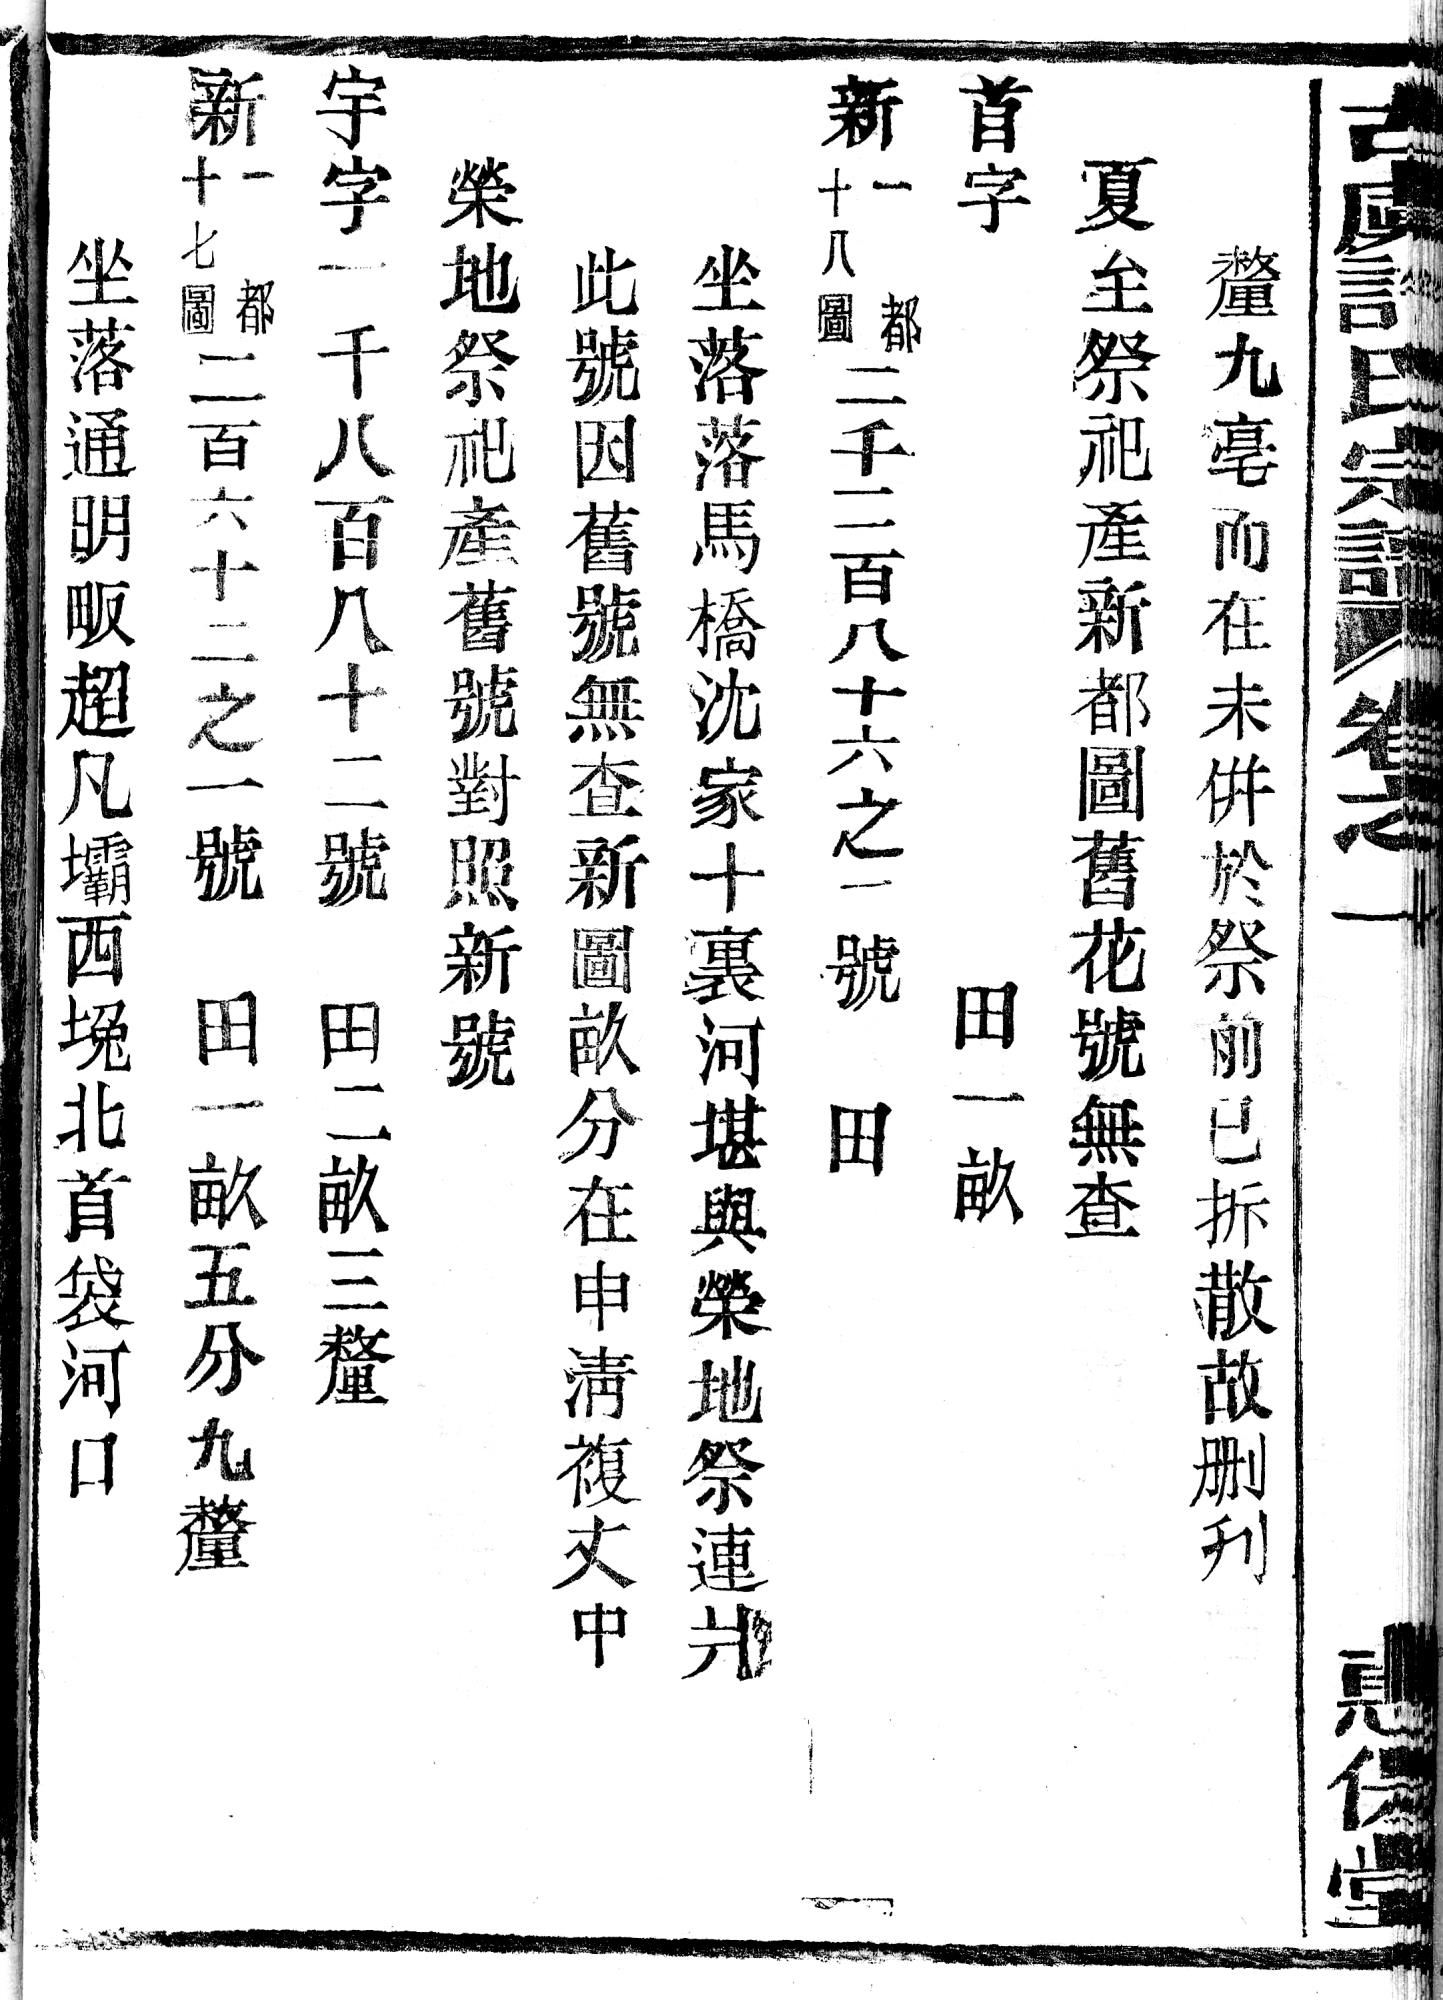 古虞許氏宗譜 卷之一
釐九毫而在未併於祭前已拆散故删刋
夏至祭祀產新都圖舊花號無查
首字 田一畝
新一都十八圖二千二百八十六之一號 田
坐落落馬橋沈家十裏河堪與榮地祭連爿
此號因舊號無查新圖畝分在申淸複丈中
榮地祭祀產舊號對照新號
宇字一千八百八十二號 田二畝三釐
新一都十七圖二百六十二之一號 田一畝五分九釐
坐落通明畈超凡壩西堍北首袋河口
堂